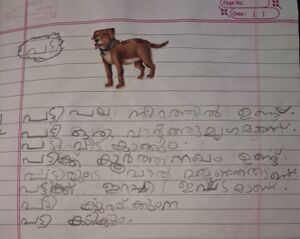 Page No.
Date: | |
പട്ടി
പട്ടി പല നിറത്തിൽ ഉണ്ട്.
പട്ടി ഒരു വളർത്തുമൃഗമാണ്.
പട്ടി വീട് കാക്കും.
പട്ടിക്ക് കൂർത്തനഖം ഉണ്ട്.
പട്ടിയുടെ വാൽ വളഞ്ഞതാണ്
പട്ടിക്ക് ഇറച്ചി ഇഷ്ടമാണ്.
പട്ടി
പട്ടി കടിക്കും.